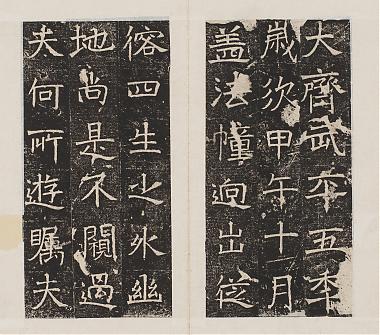 大齊武平五年
歲次甲午十月
盖法幢迥出從
傛四生之外
地尚是不闚過
夫何所遊矚夫